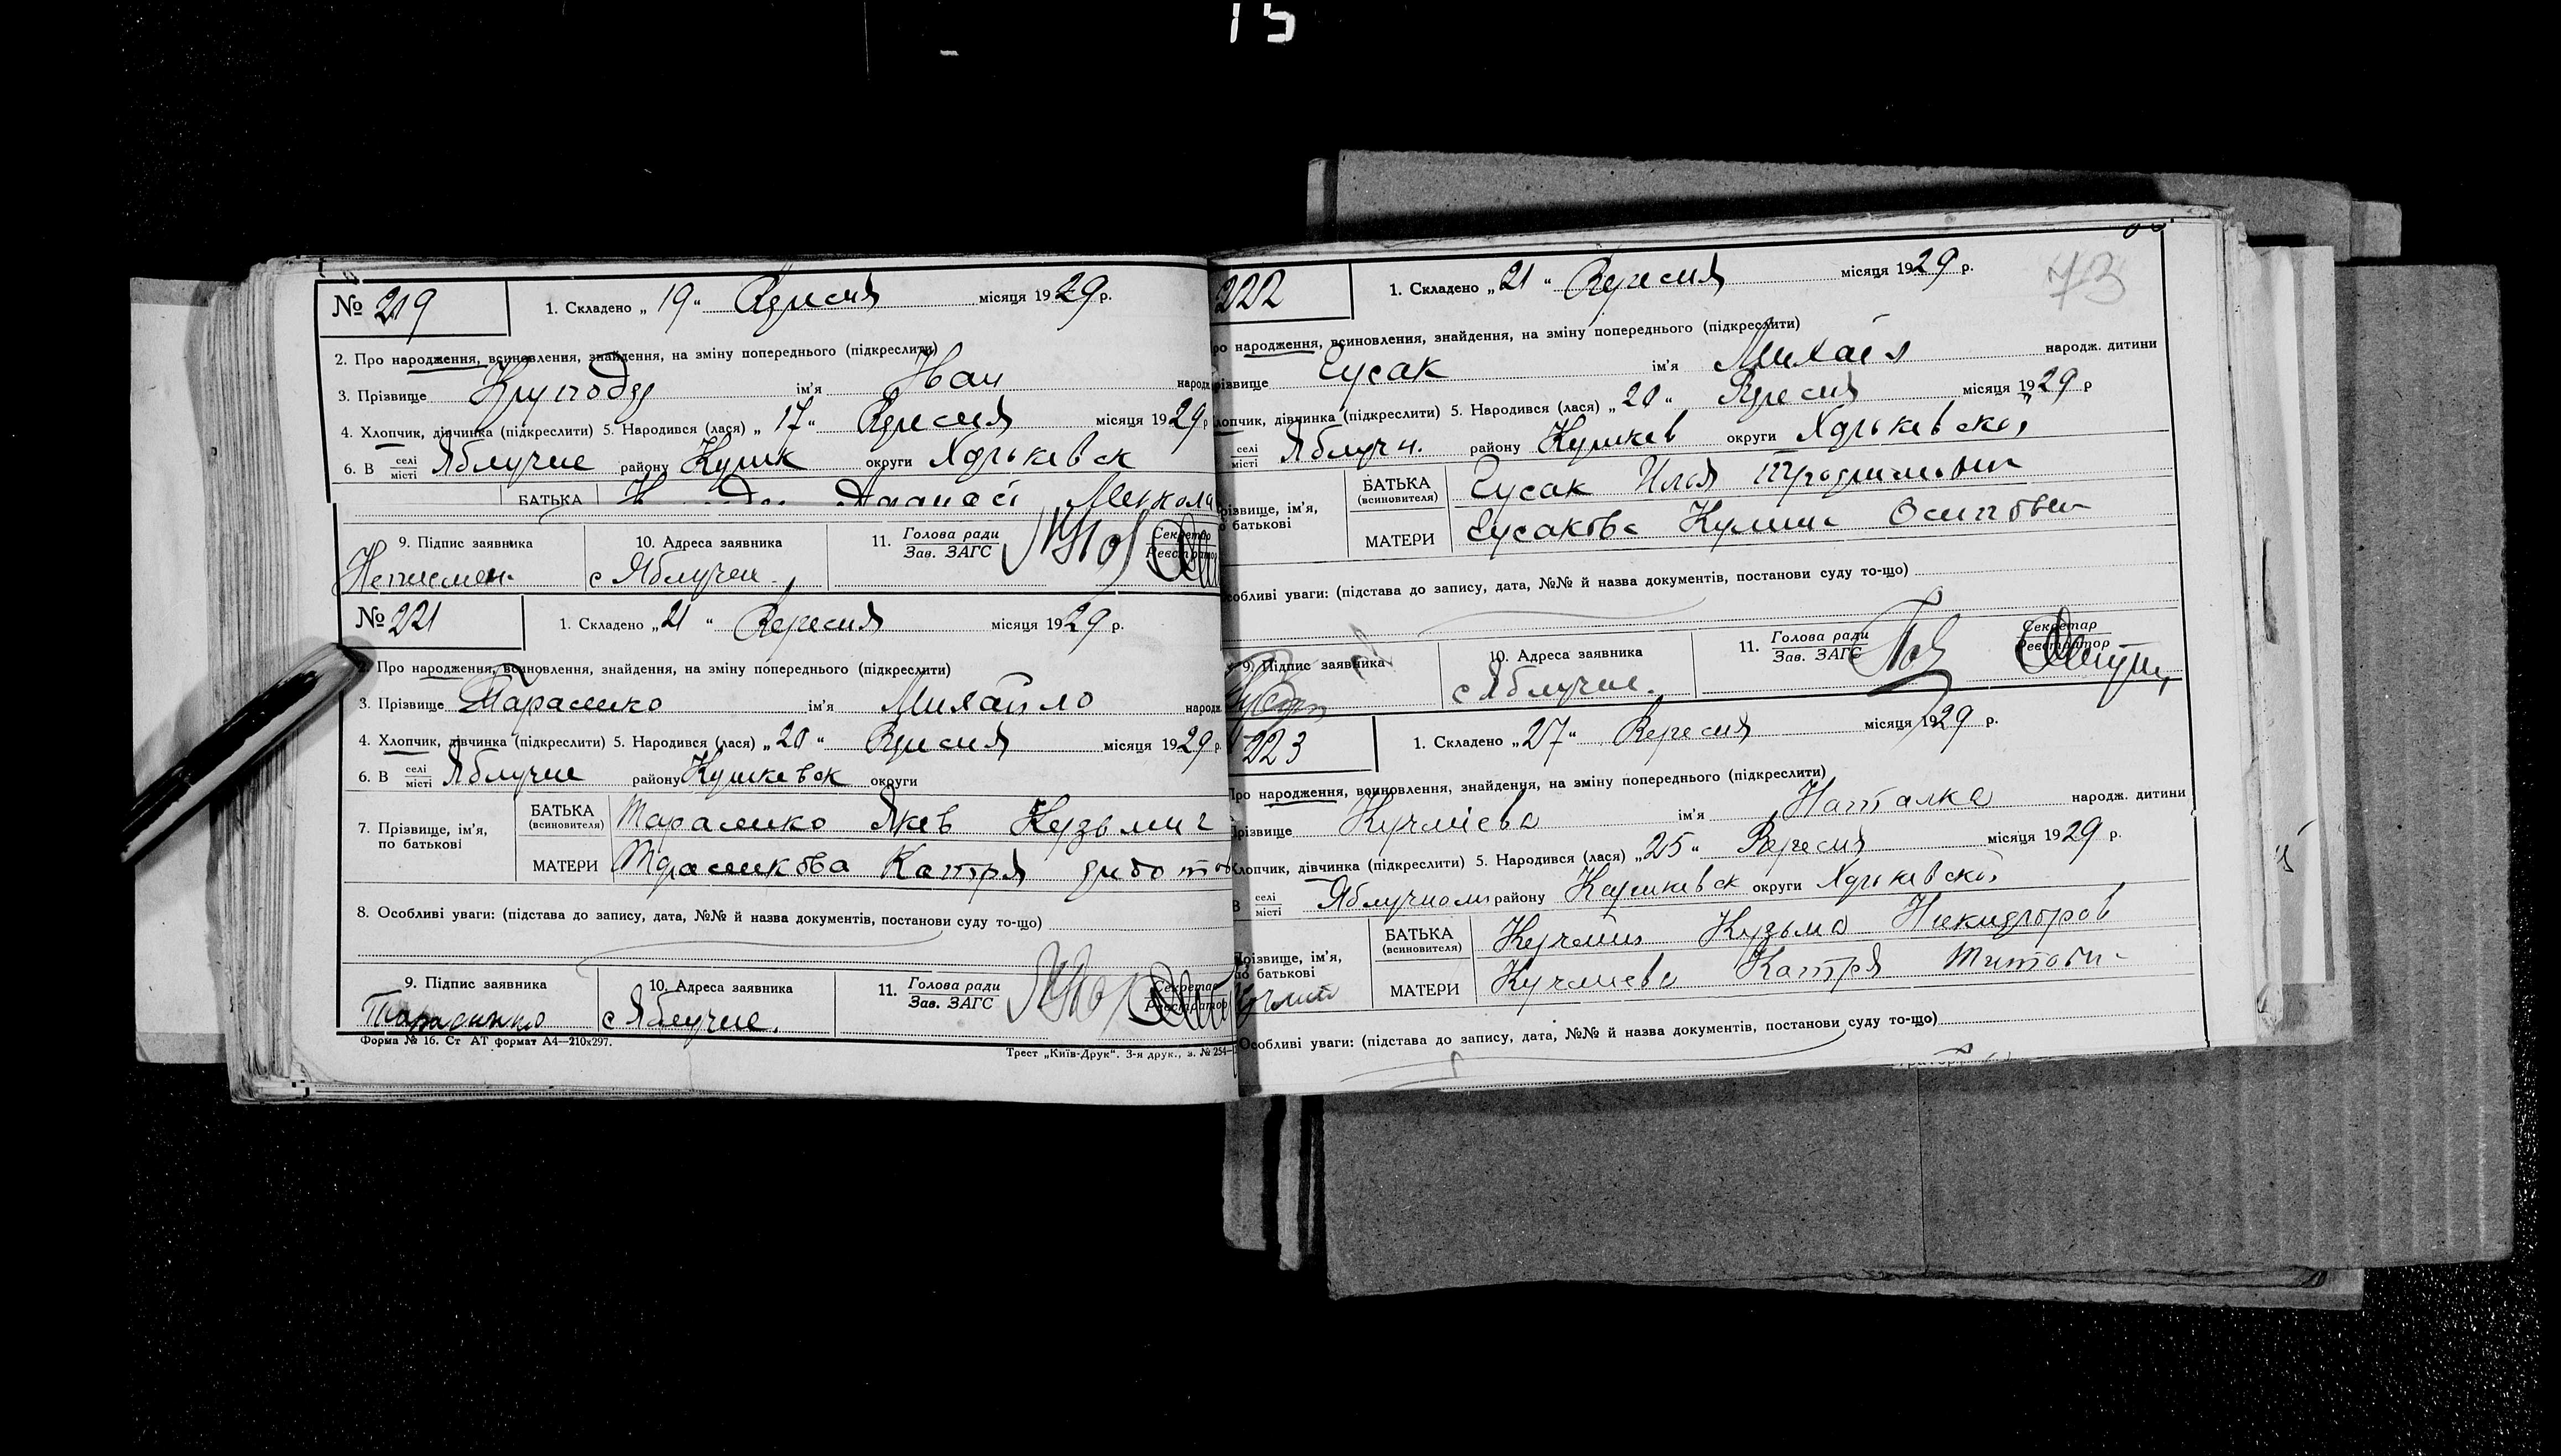 15
№ 219
1. Складено „ 19 “ Вересня місяця 1929 р.
2. Про народження, всиновлення, знайдення, на зміну попереднього (підкреслити)
3. Прізвище ім'я Іван народж
4. Хлопчик, дівчинка (підкреслити) 5. Народився (лася) „ 17 “ Вересня місяця 1929 р
6. В селі місті Яблучне району округи Харьківськ
БАТЬКА Микола
9. Підпис заявника 10. Адреса заявника 11. Голова ради Зав. ЗАГС Секретар Реєстратор
Неписмен. с Яблучне
№ 221
1. Складено „ 21 “ Вересня місяця 1929 р.
2. Про народження, всиновлення, знайдення, на зміну попереднього (підкреслити)
3. Прізвище Тарасенко ім'я Михайло народж
4. Хлопчик, дівчинка (підкреслити) 5. Народився (лася) „ 20 “ Вересня місяця 1929 р.
6. В селі місті Яблучне району округи
7. Прізвище, ім'я, по батькові
БАТЬКА (всиновителя) Тарасенко Яків Кузьмич
МАТЕРИ Катря
8. Особливі уваги: (підстава до запису, дата, №№ й назва документів, постанови суду то-що)
9. Підпис заявника 10. Адреса заявника 11. Голова ради Зав. ЗАГС Секретар Реєстратор
Тарасенко с Яблучне.
Форма № 16. Ст АТ формат А4—210х297. Трест „Київ-Друк“. 3-я друк., з. № 254—
222
1. Складено „ 21 “ Вересня місяця 1929 р.
73
ро народження, всиновлення, знайдення, на зміну попереднього (підкреслити)
різвище Сусак ім'я народж. дитини
лопчик, дівчинка (підкреслити) 5. Народився (лася) „ 20 “ Вересня місяця 1929 р
селі місті Яблучн. району округи Харьківської
різвище, ім'я, о батькові
БАТЬКА (всиновителя) Сусак Илья
МАТЕРИ Сусакова
собливі уваги: (підстава до запису, дата, №№ й назва документів, постанови суду то-що)
9. Підпис заявника 10. Адреса заявника 11. Голова ради Зав. ЗАГС Секретар Реєстратор
с Яблучне.
223
1. Складено „ 27 “ Вересня місяця 1929 р.
Про народження, всиновлення, знайдення, на зміну попереднього (підкреслити)
Прізвище ім'я Наталка народж. дитини
Хлопчик, дівчинка (підкреслити) 5. Народився (лася) „ 25 “ Вересня місяця 1929 р.
В селі місті Яблучном району округи Харьківської
Прізвище, ім'я, по батькові
БАТЬКА (всиновителя) Кузьма
МАТЕРИ Катря
Особливі уваги: (підстава до запису, дата, №№ й назва документів, постанови суду то-що)